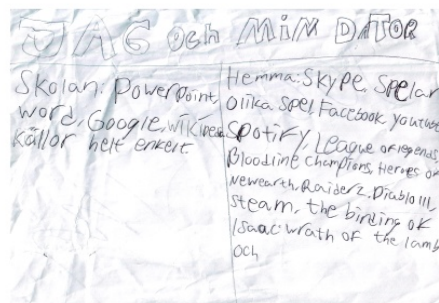 JAG och MIN DATOR
Skolan: Powerpoint,
word, Google, wikiped
källor helt enkelt.
Hemma: Skype, spelar
olika spel Facebook youtube
spotify, League of legends
Bloodline champions, Heroes of
newearth, Raiderz, Diablo III,
steam, the binding of
Isaac: wrath of the lamb
och